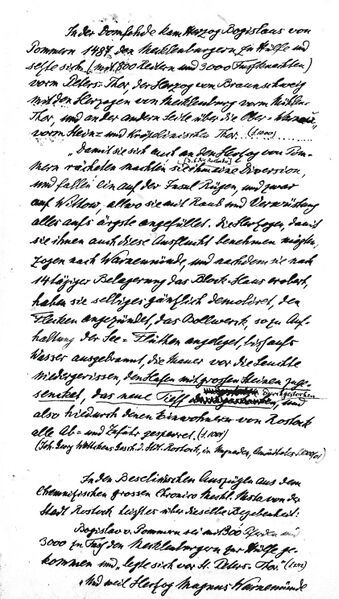 In der Domfehde kam Herzog Bogislaus von
Pommern 1487 den Mecklenburgern zu Hülfe und
setzte sich (mit 800 Reitern und 3000 Fussknechten)
vorm Peters-Thor, der Herzog von Braunschweig
mit den Herzogen von Mecklenburg vorm Mühlen
Thor, und an der andern Seite über die Ober-Warnau,
vorm Heinz und Kröpelinische Thor.
"Damit sie sich auch an den Herzog von Pom-
mern rächeten machten sie ihm eine Diversion,
und fallen ein auf der Insul Rügen, und zwar
auf Wittow allwo sie mit Raub und Verwüstung
alles aufs ärgste angefüllet. Die Herzogen, damit
sie ihnen auch diese Ausflucht benehmen mögten,
zogen nach Warnemünde, und nachdem sie nach
14tägiger Belagerung das Block-Haus erobert,
haben sie selbiges gäntzlich demoliret, den
Flecken angezündet, das Bollwerck, so zu Auf-
haltung der See-Fluthen angeleget, biss aufs
Wasser ausgebrannt, die Mauer vor die Leuchte
niedergerissen, den Hafen mit grossen Steinen zuge-
sencket, das neue Tieff durchgestochen, und
also hiedurch denen Einwohnern von Rostock
alle Ab- und Zufuhr gesperret.
In den Beselinischen Auszügen aus dem
Chemnitzischen grossen Chronico
Stadt Rostock heisset es über dieselbe Begebenheit:
Bogislav v. Pommern sei mit 800 Pferden und
3000 zu Fuss den Mecklenburgern zur Hülfe ge-
kommen und "legte sich vor St. Peters-Thor."
"Und weil Hertzog Magnus Warnemünde